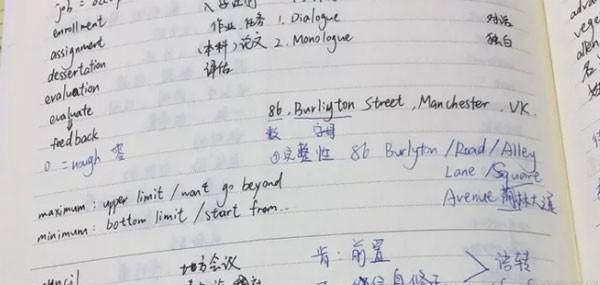 job =
enrollment
assignment 作业.任务 1. Dialogue 对话
dessertation (本科)论文 2. Monologue 独白
evaluation 评估
evaluate
feedback
86, Burliyton Street, Manchester. UK.
数 字母
0 = nough 零
①完整性 86 Burlyton /Road/Alley
Lane /Square
Avenue 林大道
maximum: upper limit /won't go beyond
minimum: bottom limit /start from..
地方会议
肯: 前置
自修正